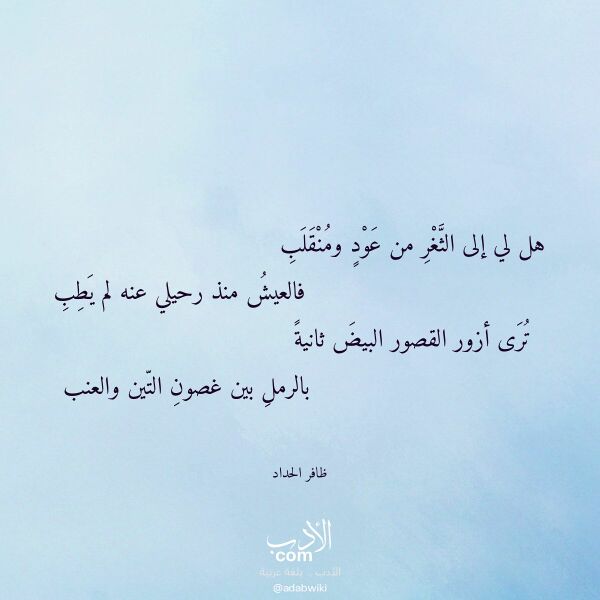 هل لي إلى الثَّغْرِ من عَوْدٍ ومُنْقَلَبِ
فالعيشُ منذ رحيلي عنه لم يَطِبِ
تُرَى أزور القصور البيضَ ثانيةً
بالرملِ بين غصونِ التّين والعنب
ظافر الحداد
الأدب
com
الأدب .. بلغة عربية
@adabwiki